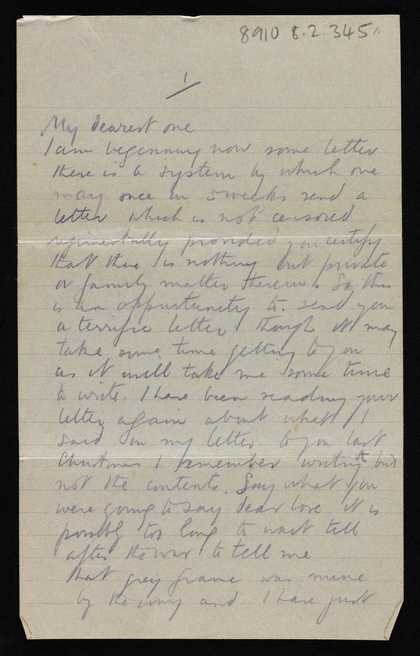 8910 8.2.345
1
My dearest one
I am beginning now some letter
there is a system by which one
may once in 5 weeks send a
letter which is not censored
regimentally provided you certify
that there is nothing but private
or family matter therein. So this
is an opportunity to send you
a terrific letter though it may
take some time getting to you
as it will take me some time
to write. I have been reading your
letter again about what I
said in my letter to you last
Christmas I remember writing it but
not the contents. Say what you
were going to say dear love it is
possibly too long to wait till
after the war to tell me
That grey frame was mine
by the way and I have just